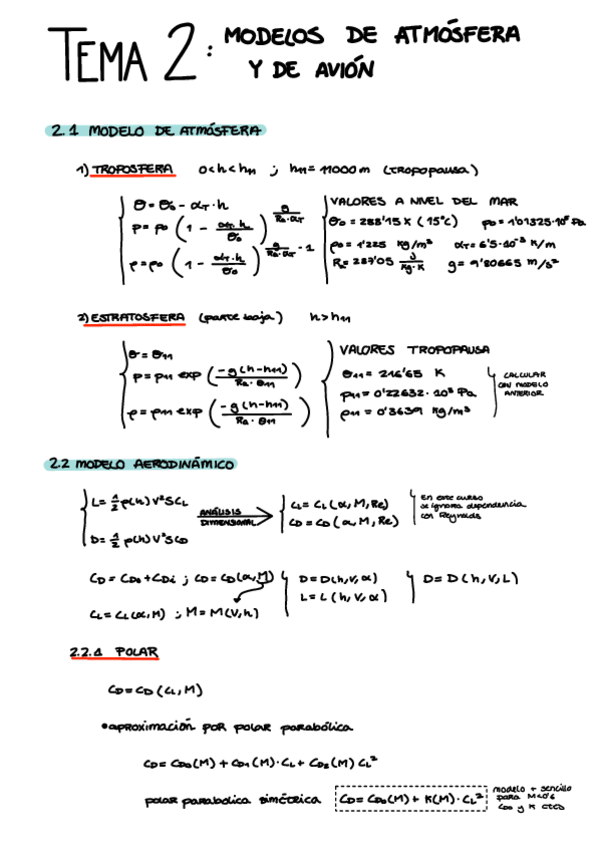 TEMA 2: MODELOS DE ATMÓSFERA
Y DE AVIÓN
2.1 MODELO DE ATMÓSFERA
1) TROPOSFERA 0<h<h11 ; h11= 11000m (tropopausa)
Θ=Θ0 - αT·h
p=p0 (1 - αT·h/Θ0)^(g/(Ra·αT))
ρ=ρ0 (1 - αT·h/Θ0)^(g/(Ra·αT) - 1)
VALORES A NIVEL DEL MAR
Θ0= 288'15K (15ºC) p0= 1'01325·10⁵ Pa
ρ0= 1'225 kg/m³ αT= 6'5·10⁻³ K/m
Ra= 287'05 J/kg·K g= 9'80665 m/s²
2) ESTRATOSFERA (parte baja) h>h11
Θ=Θ11
p=p11 exp(-g(h-h11)/(Ra·Θ11))
ρ=ρ11 exp(-g(h-h11)/(Ra·Θ11))
VALORES TROPOPAUSA
Θ11= 216'65 K
p11= 0'22632·10⁵ Pa
ρ11= 0'3639 kg/m³
CALCULAR
CON MODELO
ANTERIOR
2.2 MODELO AERODINÁMICO
L= 1/2 ρ(h)V²SCL
D= 1/2 ρ(h)V²SCD
ANÁLISIS
DIMENSIONAL
CL= CL(α,M,Re)
CD= CD(α,M,Re)
En este curso
se ignora dependencia
con Reynolds
CD= CD0+CDi ; CD=CD(α,M)
CL= CL(α,M) ; M=M(V,h)
D=D(h,V,α)
L=L(h,V,α)
D=D(h,V,L)
2.2.1 POLAR
CD=CD(CL,M)
•aproximación por polar parabólica
CD= CD0(M)+CD1(M)·CL+CD2(M)CL²
polar parabolica simétrica CD=CD0(M)+K(M)·CL²
modelo + sencillo
para M<0'6
CD0 y K ctes